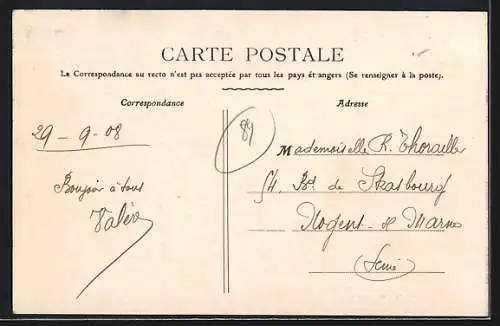 CARTE POSTALE
La Correspondance au recto n'est pas acceptée par tous les pays étrangers (Se renseigner à la poste).
Correspondance
Adresse
29 - 9 - 08
Bonjour à tous
Valère
89
Mademoiselle R. Thorailler
54. Bd. de Strasbourg
Nogent - s Marne
(Seine)